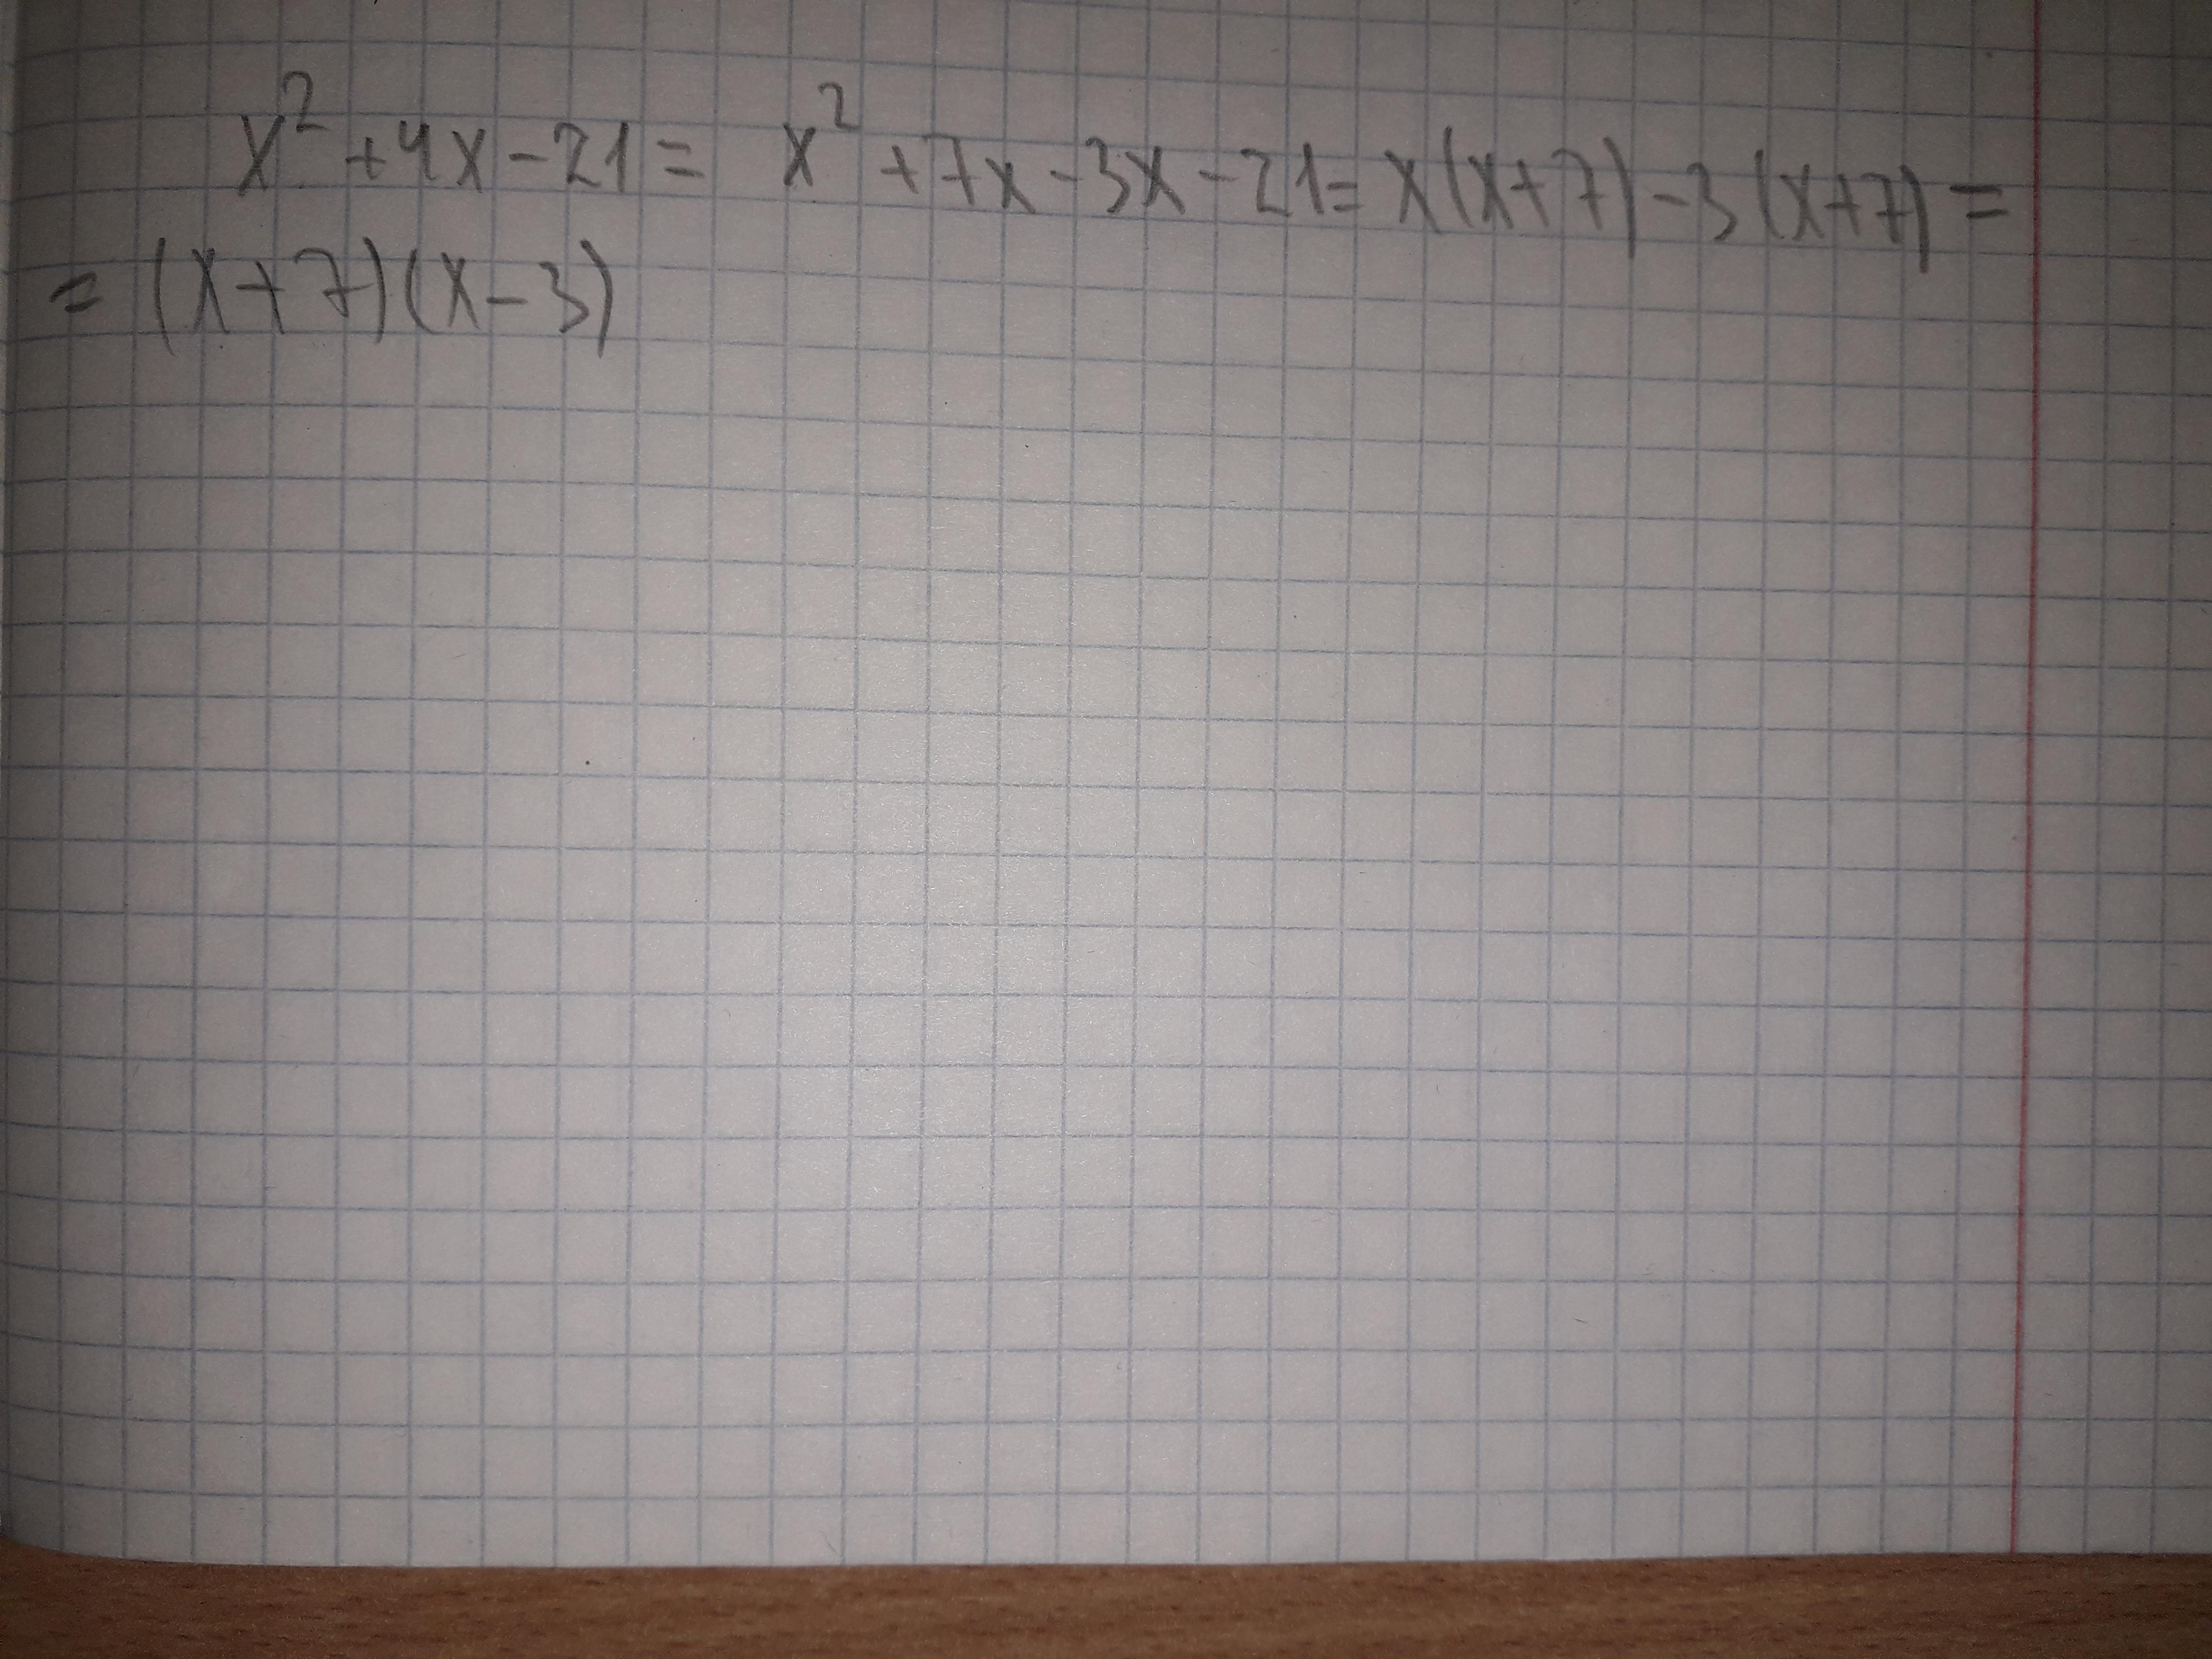 x² + 4x - 21 = x² + 7x - 3x - 21 = x(x+7) - 3(x+7) =
= (x+7)(x-3)